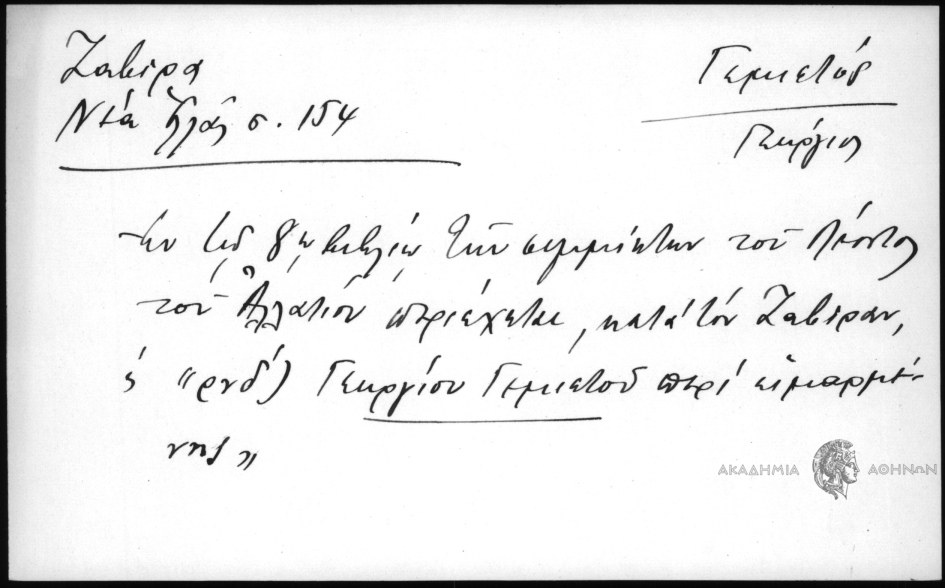 Ζαβίρα
Νέα Ἑλλάς σ. 154
Γεμιστός
Γεώργιος
Ἐν τῷ βιβλίῳ τῶν συμμίκτων τοῦ Λέοντος
τοῦ Ἀλλατίου περιέχεται, κατὰ τὸν Ζαβίραν,
«ρνδ') Γεωργίου Γεμιστοῦ περὶ εἱμαρμέ-
νης»
ΑΚΑΔΗΜΙΑ ΑΘΗΝΩΝ